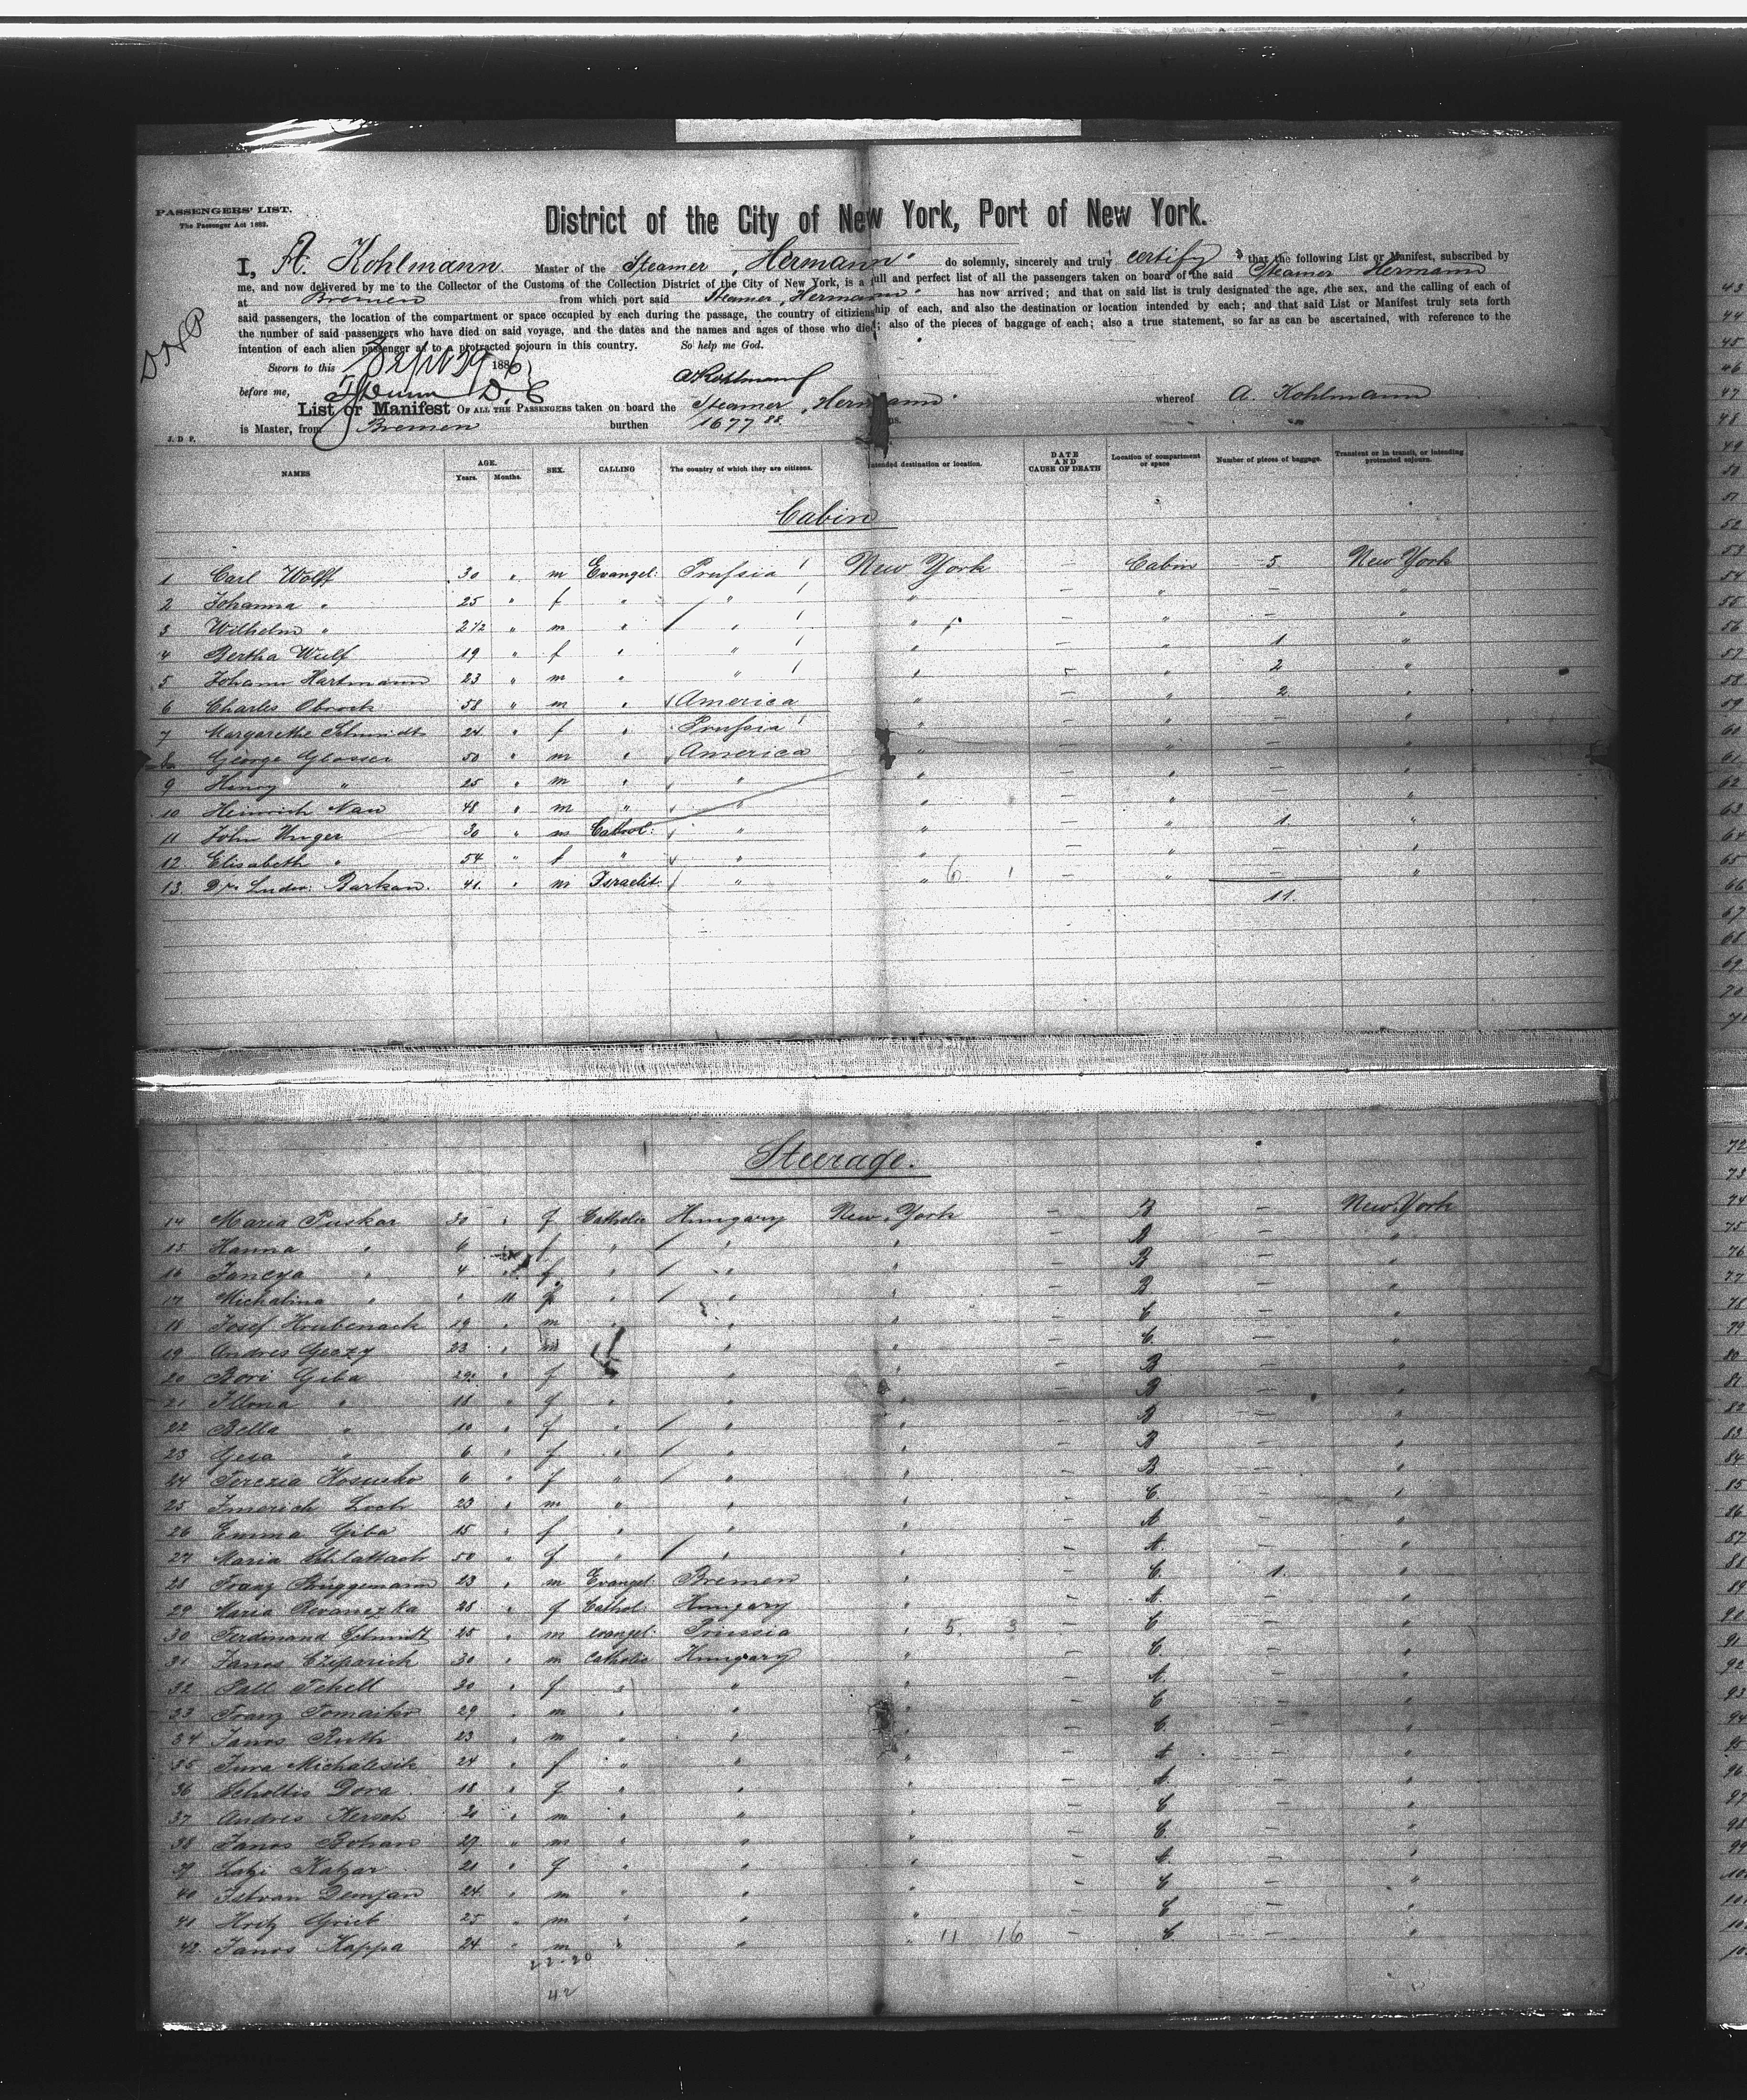 PASSENGERS' LIST.
The Passenger Act 1882.
District of the City of New York, Port of New York.
I, A. Kohlmann Master of the Steamer "Hermann" do solemnly, sincerely and truly certify that the following List or Manifest, subscribed by
me, and now delivered by me to the Collector of the Customs of the Collection District of the City of New York, is a full and perfect list of all the passengers taken on board of the said Steamer Hermann
at Bremen from which port said Steamer "Hermann" has now arrived; and that on said list is truly designated the age, the sex, and the calling of each of
said passengers, the location of the compartment or space occupied by each during the passage, the country of citizenship of each, and also the destination or location intended by each; and that said List or Manifest truly sets forth
the number of said passengers who have died on said voyage, and the dates and the names and ages of those who died; also of the pieces of baggage of each; also a true statement, so far as can be ascertained, with reference to the
intention of each alien passenger as to a protracted sojourn in this country. So help me God.
Sworn to this Sept 29 1886
before me, D.C. A Kohlmann
List or Manifest OF ALL THE PASSENGERS taken on board the Steamer "Hermann" whereof A. Kohlmann
is Master, from Bremen burthen 1677 88
J. D. P.
NAMES AGE. Years. Months. SEX. CALLING The country of which they are citizens. Intended destination or location. DATE AND CAUSE OF DEATH Location of compartment or space Number of pieces of baggage. Transient or in transit, or intending protracted sojourn.
Cabin
1 Carl Wolff 30 " m Evangel: Prussia New York — Cabin 5 New York
2 Johanna " 25 " f " " " — " — "
3 Wilhelm " 2 1/2 " m " " " — " — "
4 Bertha Wulf 19 " f " " " — " 1 "
5 Johann Hartmann 23 " m " " " — " 2 "
6 Charles 58 " m " America " — " 2 "
7 Margarethe Schmidt 24 " f " Prussia " — " — "
8 George Glosser 50 " m " America " — " — "
9 Henry " 25 " m " " " — " — "
10 Heinrich Nau 48 " m " " " — " — "
11 John Unger 30 " m Cathol: " " — " 1 "
12 Elisabeth " 54 " f " " " — " — "
13 Dr. Ludw: Barkan. 41 " m Israelit: " " 6 1 — " — "
11.
Steerage.
14 Maria Puskar 30 " f Catholic Hungary New York — B — New York
15 Hanna " 6 " f " " " — B — "
16 " 4 " f " " " — B — "
17 Michalina " " 11 f " " " — B — "
18 Josef Hrubenack 19 " m " " — C — "
19 Andres Geczy 23 " m " " — C — "
20 Bori Giba " f " " — B — "
21 Illona " 11 " f " " " — B — "
22 Bella " 10 " f " " " — B — "
23 Gesa " 6 " f " " " — B — "
24 Terezia 6 " f " " " — B — "
25 Imerich 23 " m " " " — C — "
26 Emma Giba 15 " f " " " — A — "
27 Maria 50 " f " " " — A. — "
28 Franz Brüggemann 23 " m Evangel: Bremen " — C. 1. "
29 Maria 28 " f Cathol: Hungary " — A. — "
30 Ferdinand Schmidt 25 " m evangel: Prussia " 5. 3 — C — "
31 Janos 30 " m Catholic Hungary " — C. — "
32 20 " f " " " — A. — "
33 Franz Tomaiko 29 " m " " " — C — "
34 Janos Ruth 23 " m " " " — C. — "
35 24 " f " " " — A — "
36 Dora 18 " f " " " — A. — "
37 Andres Kersch " m " " " — C — "
38 Janos Bohan 27 " m " " " — C. — "
39 21 " f " " " — A. — "
40 Istvan Demjan 24 " m " " " — C — "
41 Hritz 25 " m " " " — C — "
42 Janos Kappa 24 " m " " " 11 16 — C — "
22-20
42